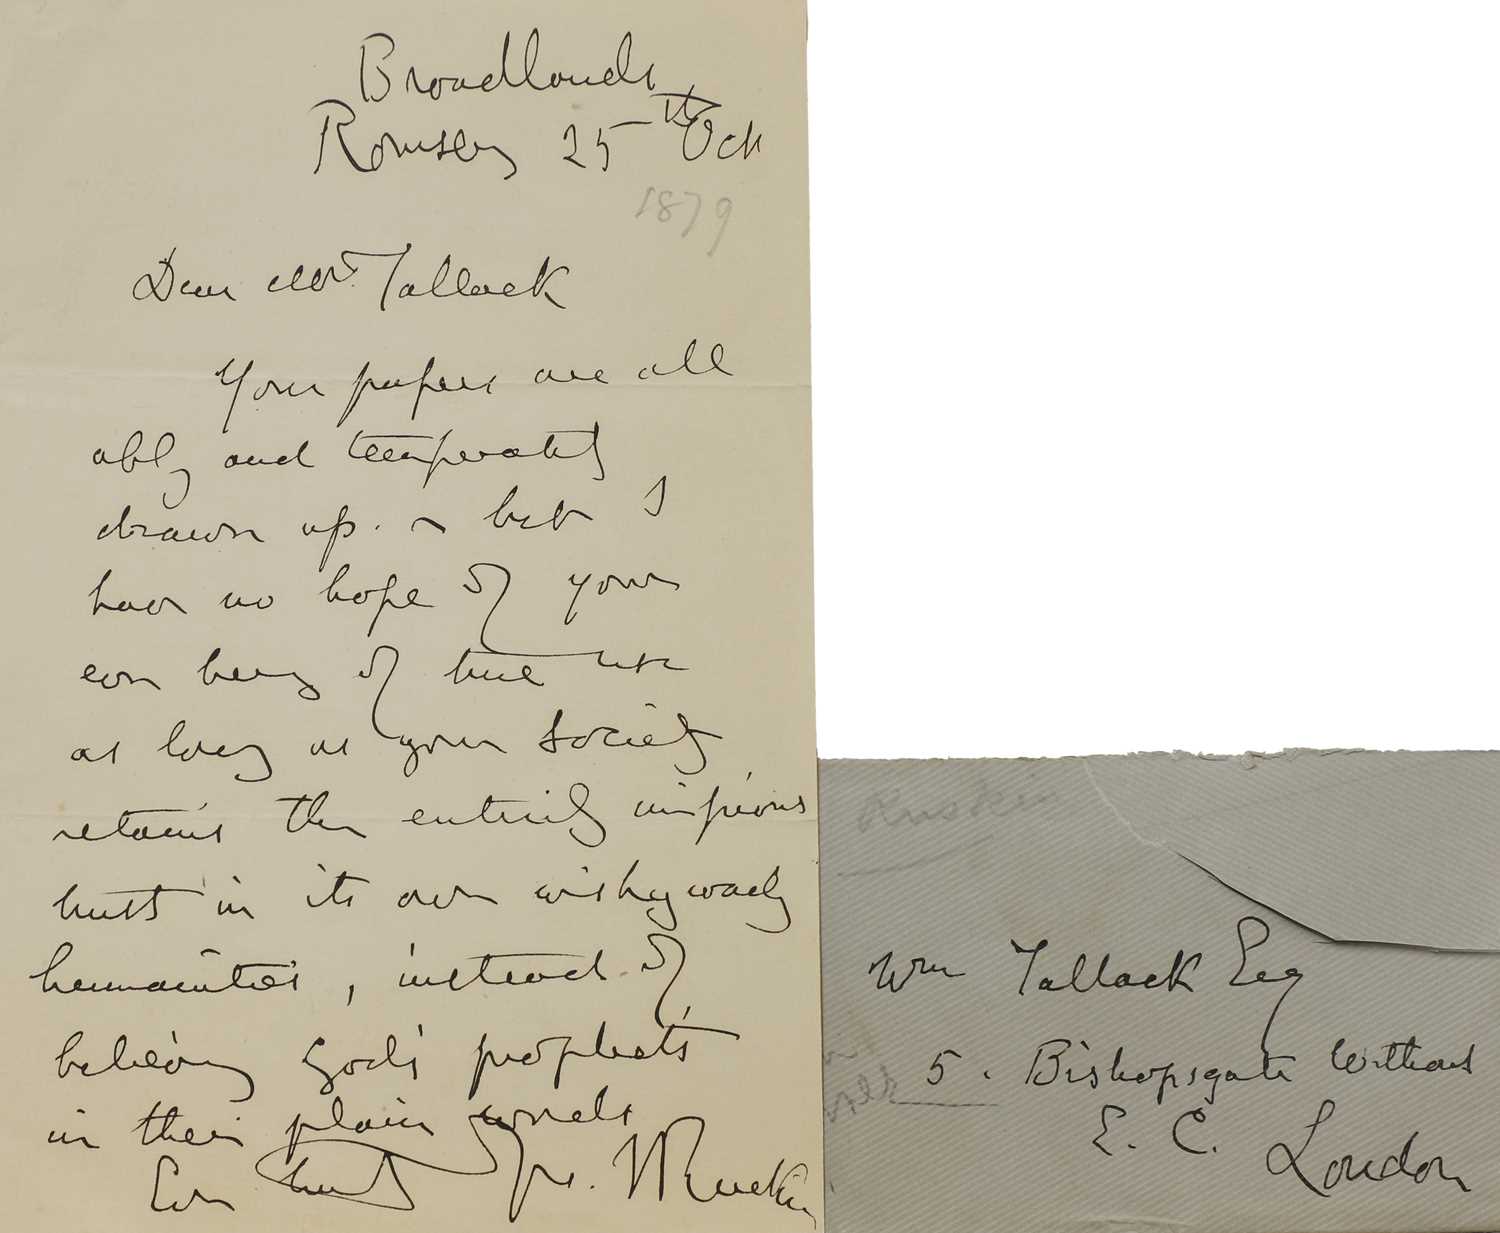 Broadlands
Romsey 25th Oct
1879
Dear Mr. Tallack
Your papers are all
ably and temperately
drawn up. - but I
have no hope of your
ever being of true use
as long as your Society
retains the entirely impious
trust in its own wishywashy
humanities, instead of
believing God's prophets
in their plain words
Ever truly yrs. JRuskin
Ruskin
Wm Tallack Esq
5. Bishopsgate Without
E. C.
London